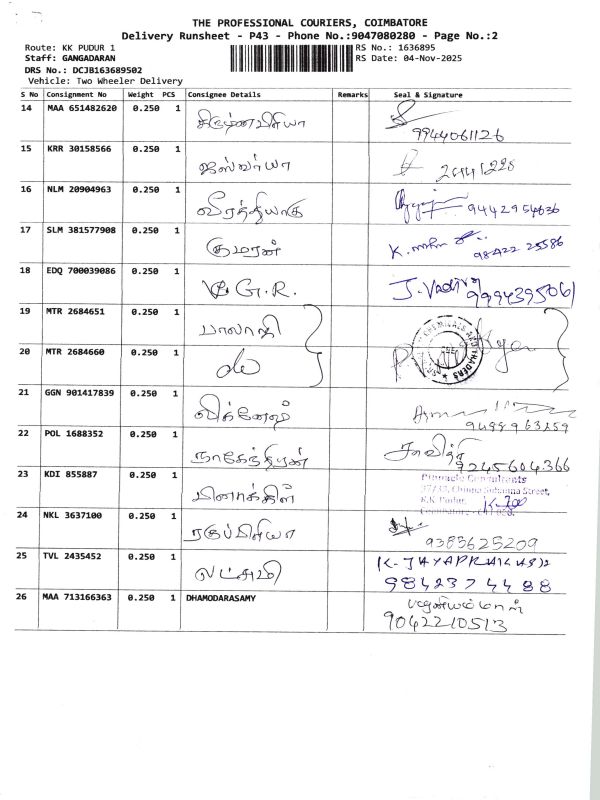 THE PROFESSIONAL COURIERS, COIMBATORE
Delivery Runsheet - P43 - Phone No.:9047080280 - Page No.:2
Route: KK PUDUR 1 RS No.: 1636895
Staff: GANGADARAN RS Date: 04-Nov-2025
DRS No.: DCJB163689502
Vehicle: Two Wheeler Delivery
S No Consignment No Weight PCS Consignee Details Remarks Seal & Signature
14 MAA 651482620 0.250 1
9944061126
15 KRR 30158566 0.250 1 ஐஸ்வர்யா
16 NLM 20904963 0.250 1 வீரத்தியாகு 9442954636
17 SLM 381577908 0.250 1 குமரன் K. 98422 25586
18 EDQ 700039086 0.250 1 V.G.R. J. 9994395061
19 MTR 2684651 0.250 1 பாலாஜி
20 MTR 2684660 0.250 1 do
21 GGN 901417839 0.250 1 விக்னேஷ்
22 POL 1688352 0.250 1 நாகேந்திரன் சாவித்ரி
9245604366
23 KDI 855887 0.250 1 மீனாக்ஷி Pinnacle Consultants
24 NKL 3637100 0.250 1
9385625209
25 TVL 2435452 0.250 1 லட்சுமி K-JAYAPRAKASH
9842374488
26 MAA 713166363 0.250 1 DHAMODARASAMY பழனியம்மாள்
9042210513